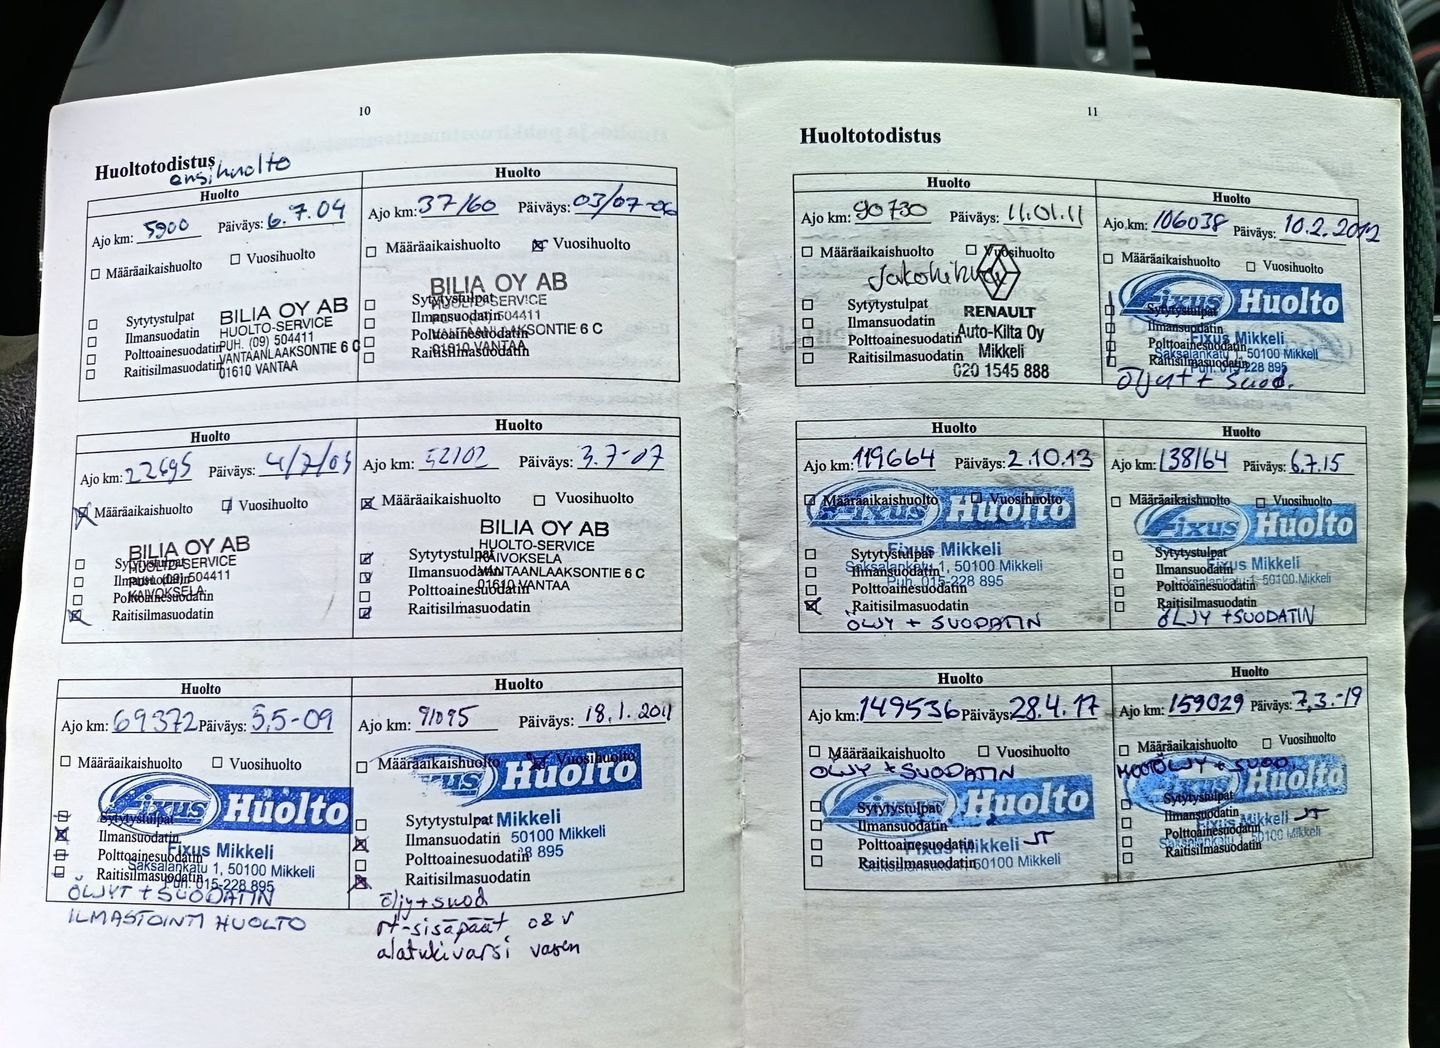 10
Huoltotodistus
ensihuolto
Huolto
Ajo km: 5900 Päiväys: 6.7.04
Määräaikaishuolto Vuosihuolto
Sytytystulpat
Ilmansuodatin
Polttoainesuodatin
Raitisilmasuodatin
BILIA OY AB
HUOLTO-SERVICE
PUH. (09) 504411
VANTAANLAAKSONTIE 6 C
01610 VANTAA
Huolto
Ajo km: 37160 Päiväys: 03/07-06
Määräaikaishuolto Vuosihuolto
Sytytystulpat
Ilmansuodatin
Polttoainesuodatin
Raitisilmasuodatin
BILIA OY AB
HUOLTO-SERVICE
504411
VANTAANLAAKSONTIE 6 C
01610 VANTAA
Huolto
Ajo km: 22695 Päiväys: 4/7/05
Määräaikaishuolto Vuosihuolto
Sytytystulpat
Ilmansuodatin
Polttoainesuodatin
Raitisilmasuodatin
BILIA OY AB
HUOLTO-SERVICE
PUH. (09) 504411
KAIVOKSELA
Huolto
Ajo km: 52102 Päiväys: 3.7-07
Määräaikaishuolto Vuosihuolto
Sytytystulpat
Ilmansuodatin
Polttoainesuodatin
Raitisilmasuodatin
BILIA OY AB
HUOLTO-SERVICE
KAIVOKSELA
VANTAANLAAKSONTIE 6 C
01610 VANTAA
Huolto
Ajo km: 69372 Päiväys: 5.5-09
Määräaikaishuolto Vuosihuolto
Fixus Huolto
Sytytystulpat
Ilmansuodatin
Polttoainesuodatin
Raitisilmasuodatin
Fixus Mikkeli
Saksalankatu 1, 50100 Mikkeli
Puh. 015-228 895
ÖLJYT + SUODATIN
ILMASTOINTI HUOLTO
Huolto
Ajo km: 91095 Päiväys: 18.1.2011
Määräaikaishuolto Vuosihuolto
Fixus Huolto
Sytytystulpat
Ilmansuodatin
Polttoainesuodatin
Raitisilmasuodatin
Mikkeli
50100 Mikkeli
895
öljy+suod
rt-sisäpäät o&v
alatukivarsi vasen
11
Huoltotodistus
Huolto
Ajo km: 90730 Päiväys: 11.01.11
Määräaikaishuolto Vuosihuolto
Jakohihna
Sytytystulpat
Ilmansuodatin
Polttoainesuodatin
Raitisilmasuodatin
RENAULT
Auto-Kilta Oy
Mikkeli
020 1545 888
Huolto
Ajo km: 106038 Päiväys: 10.2.2012
Määräaikaishuolto Vuosihuolto
Fixus Huolto
Sytytystulpat
Ilmansuodatin
Polttoainesuodatin
Raitisilmasuodatin
Fixus Mikkeli
Saksalankatu 1, 50100 Mikkeli
Puh. 015-228 895
Öljyt + Suod.
Huolto
Ajo km: 119664 Päiväys: 2.10.13
Määräaikaishuolto Vuosihuolto
Fixus Huolto
Sytytystulpat
Ilmansuodatin
Polttoainesuodatin
Raitisilmasuodatin
Fixus Mikkeli
Saksalankatu 1, 50100 Mikkeli
Puh. 015-228 895
ÖLJY + SUODATIN
Huolto
Ajo km: 138164 Päiväys: 6.7.15
Määräaikaishuolto Vuosihuolto
Fixus Huolto
Sytytystulpat
Ilmansuodatin
Polttoainesuodatin
Raitisilmasuodatin
Fixus Mikkeli
Saksalankatu 1, 50100 Mikkeli
ÖLJY +SUODATIN
Huolto
Ajo km: 149536 Päiväys: 28.4.17
Määräaikaishuolto Vuosihuolto
ÖLJY + SUODATIN
Fixus Huolto
Sytytystulpat
Ilmansuodatin
Polttoainesuodatin
Raitisilmasuodatin
Fixus Mikkeli JT
50100 Mikkeli
Huolto
Ajo km: 159029 Päiväys: 7.3.-19
Määräaikaishuolto Vuosihuolto
MOOTÖLJY + SUOD.
Fixus Huolto
Sytytystulpat
Ilmansuodatin
Polttoainesuodatin
Raitisilmasuodatin
Fixus Mikkeli JT
Saksalankatu 1, 50100 Mikkeli